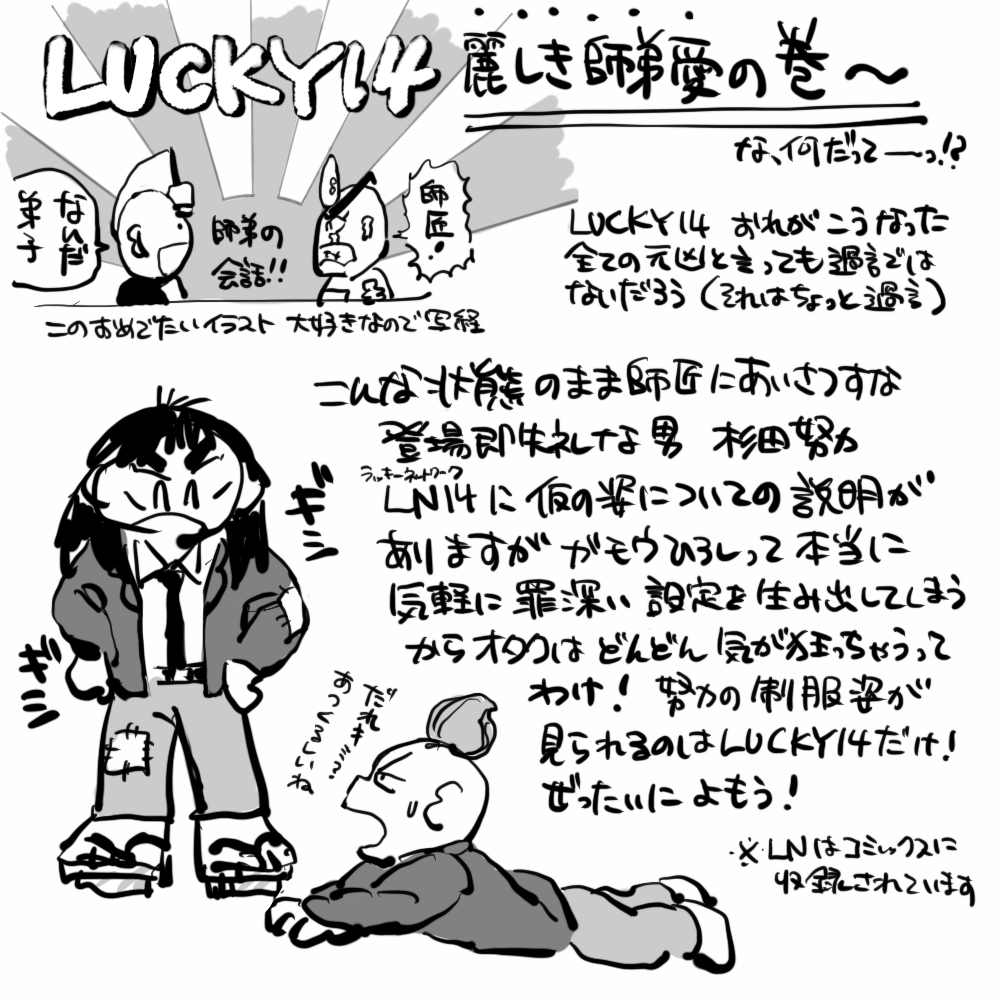 LUCKY14 麗しき師弟愛の巻〜
な、何だってーっ!?
なんだ
弟子
師弟の
会話!!
師匠!
このおめでたいイラスト 大好きなので写経
LUCKY14 おれがこうなった
全ての元凶と言っても過言では
ないだろう(それはちょっと過言)
こんな状態のまま師匠にあいさつすな
登場即失礼な男 杉田努力
ラッキーネットワーク
LN14に仮の姿についての説明が
ありますが ガモウひろしって本当に
気軽に罪深い設定を生み出してしまう
からオタクはどんどん気が狂っちゃうって
わけ! 努力の制服姿が
見られるのはLUCKY14だけ!
ぜったいによもう!
※LNはコミックスに
収録されています
ギシ
ギシ
だれき…?
あつくるしいね